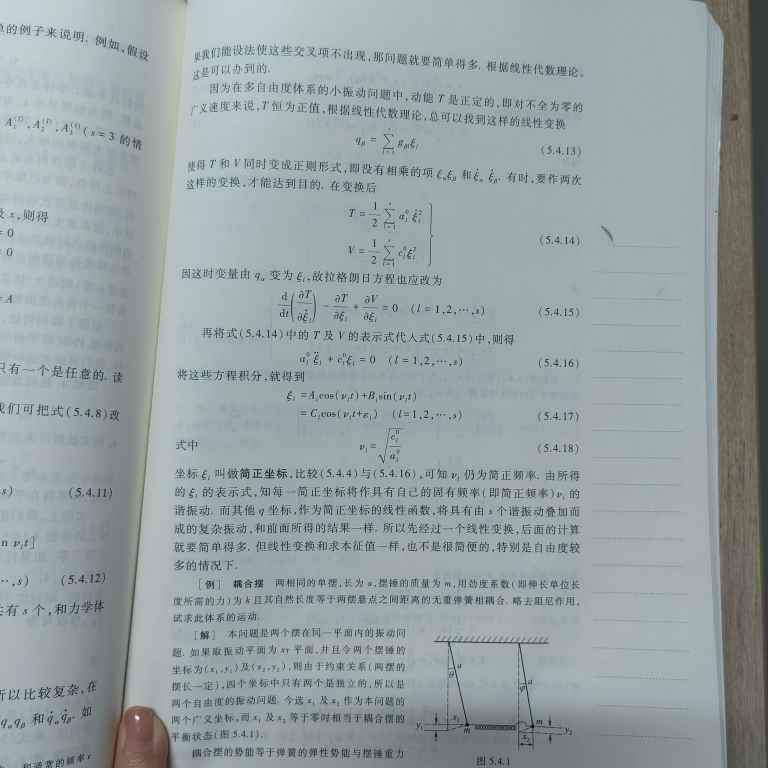 的例子来说明. 例如,假设
A₁⁽ˡ⁾,A₂⁽ˡ⁾,A₃⁽ˡ⁾(s=3 的情
及 x,则得
=0
=0
=A
只有一个是任意的. 读
我们可把式(5.4.8)改
s) (5.4.11)
n νₗt]
…,s) (5.4.12)
有 s 个,和力学体
所以比较复杂,在
qₐqᵦ 和 q̇ₐq̇ᵦ. 如
果我们能设法使这些交叉项不出现,那问题就要简单得多. 根据线性代数理论,
这是可以办到的.
因为在多自由度体系的小振动问题中,动能 T 是正定的,即对不全为零的
广义速度来说,T 恒为正值,根据线性代数理论,总可以找到这样的线性变换
qᵦ = Σ_{l=1}^{s} g_{βl}ξₗ (5.4.13)
使得 T 和 V 同时变成正则形式,即没有相乘的项 ξₐξᵦ 和 ξ̇ₐ ξ̇ᵦ. 有时,要作两次
这样的变换,才能达到目的. 在变换后
T = 1/2 Σ_{l=1}^{s} aₗ⁰ ξ̇ₗ²
V = 1/2 Σ_{l=1}^{s} cₗ⁰ξₗ² (5.4.14)
因这时变量由 qₐ 变为 ξₗ,故拉格朗日方程也应改为
d/dt(∂T/∂ξ̇ₗ) − ∂T/∂ξₗ + ∂V/∂ξₗ = 0 (l=1,2,…,s) (5.4.15)
再将式(5.4.14)中的 T 及 V 的表示式代入式(5.4.15)中,则得
aₗ⁰ ξ̈ₗ + cₗ⁰ξₗ = 0 (l=1,2,…,s) (5.4.16)
将这些方程积分,就得到
ξₗ =Aₗcos(νₗt)+Bₗsin(νₗt)
= Cₗcos(νₗt+εₗ) (l=1,2,…,s) (5.4.17)
式中 νₗ=√(cₗ⁰/aₗ⁰) (5.4.18)
坐标 ξₗ 叫做简正坐标,比较(5.4.4)与(5.4.16),可知 νₗ 仍为简正频率. 由所得
的 ξₗ 的表示式,知每一简正坐标将作具有自己的固有频率(即简正频率)νₗ 的
谐振动. 而其他 q 坐标,作为简正坐标的线性函数,将具有由 s 个谐振动叠加而
成的复杂振动,和前面所得的结果一样. 所以先经过一个线性变换,后面的计算
就要简单得多. 但线性变换和求本征值一样,也不是很简便的,特别是自由度较
多的情况下.
[例] 耦合摆 两相同的单摆,长为 a,摆锤的质量为 m,用劲度系数(即伸长单位长
度所需的力)为 k 且其自然长度等于两摆悬点之间距离的无重弹簧相耦合. 略去阻尼作用,
试求此体系的运动.
[解] 本问题是两个摆在同一平面内的振动问
题. 如果取振动平面为 xy 平面,并且令两个摆锤的
坐标为(x₁,y₁)及(x₂,y₂),则由于约束关系(两摆的
摆长一定),四个坐标中只有两个是独立的,所以是
两个自由度的振动问题. 今选 x₁ 及 x₂ 作为本问题的
两个广义坐标,而 x₁ 及 x₂ 等于零时相当于耦合摆的
平衡状态(图 5.4.1).
耦合摆的势能等于弹簧的弹性势能与摆锤重力
θ a φ a
y₁ x₁ m m x₂ y₂
图 5.4.1